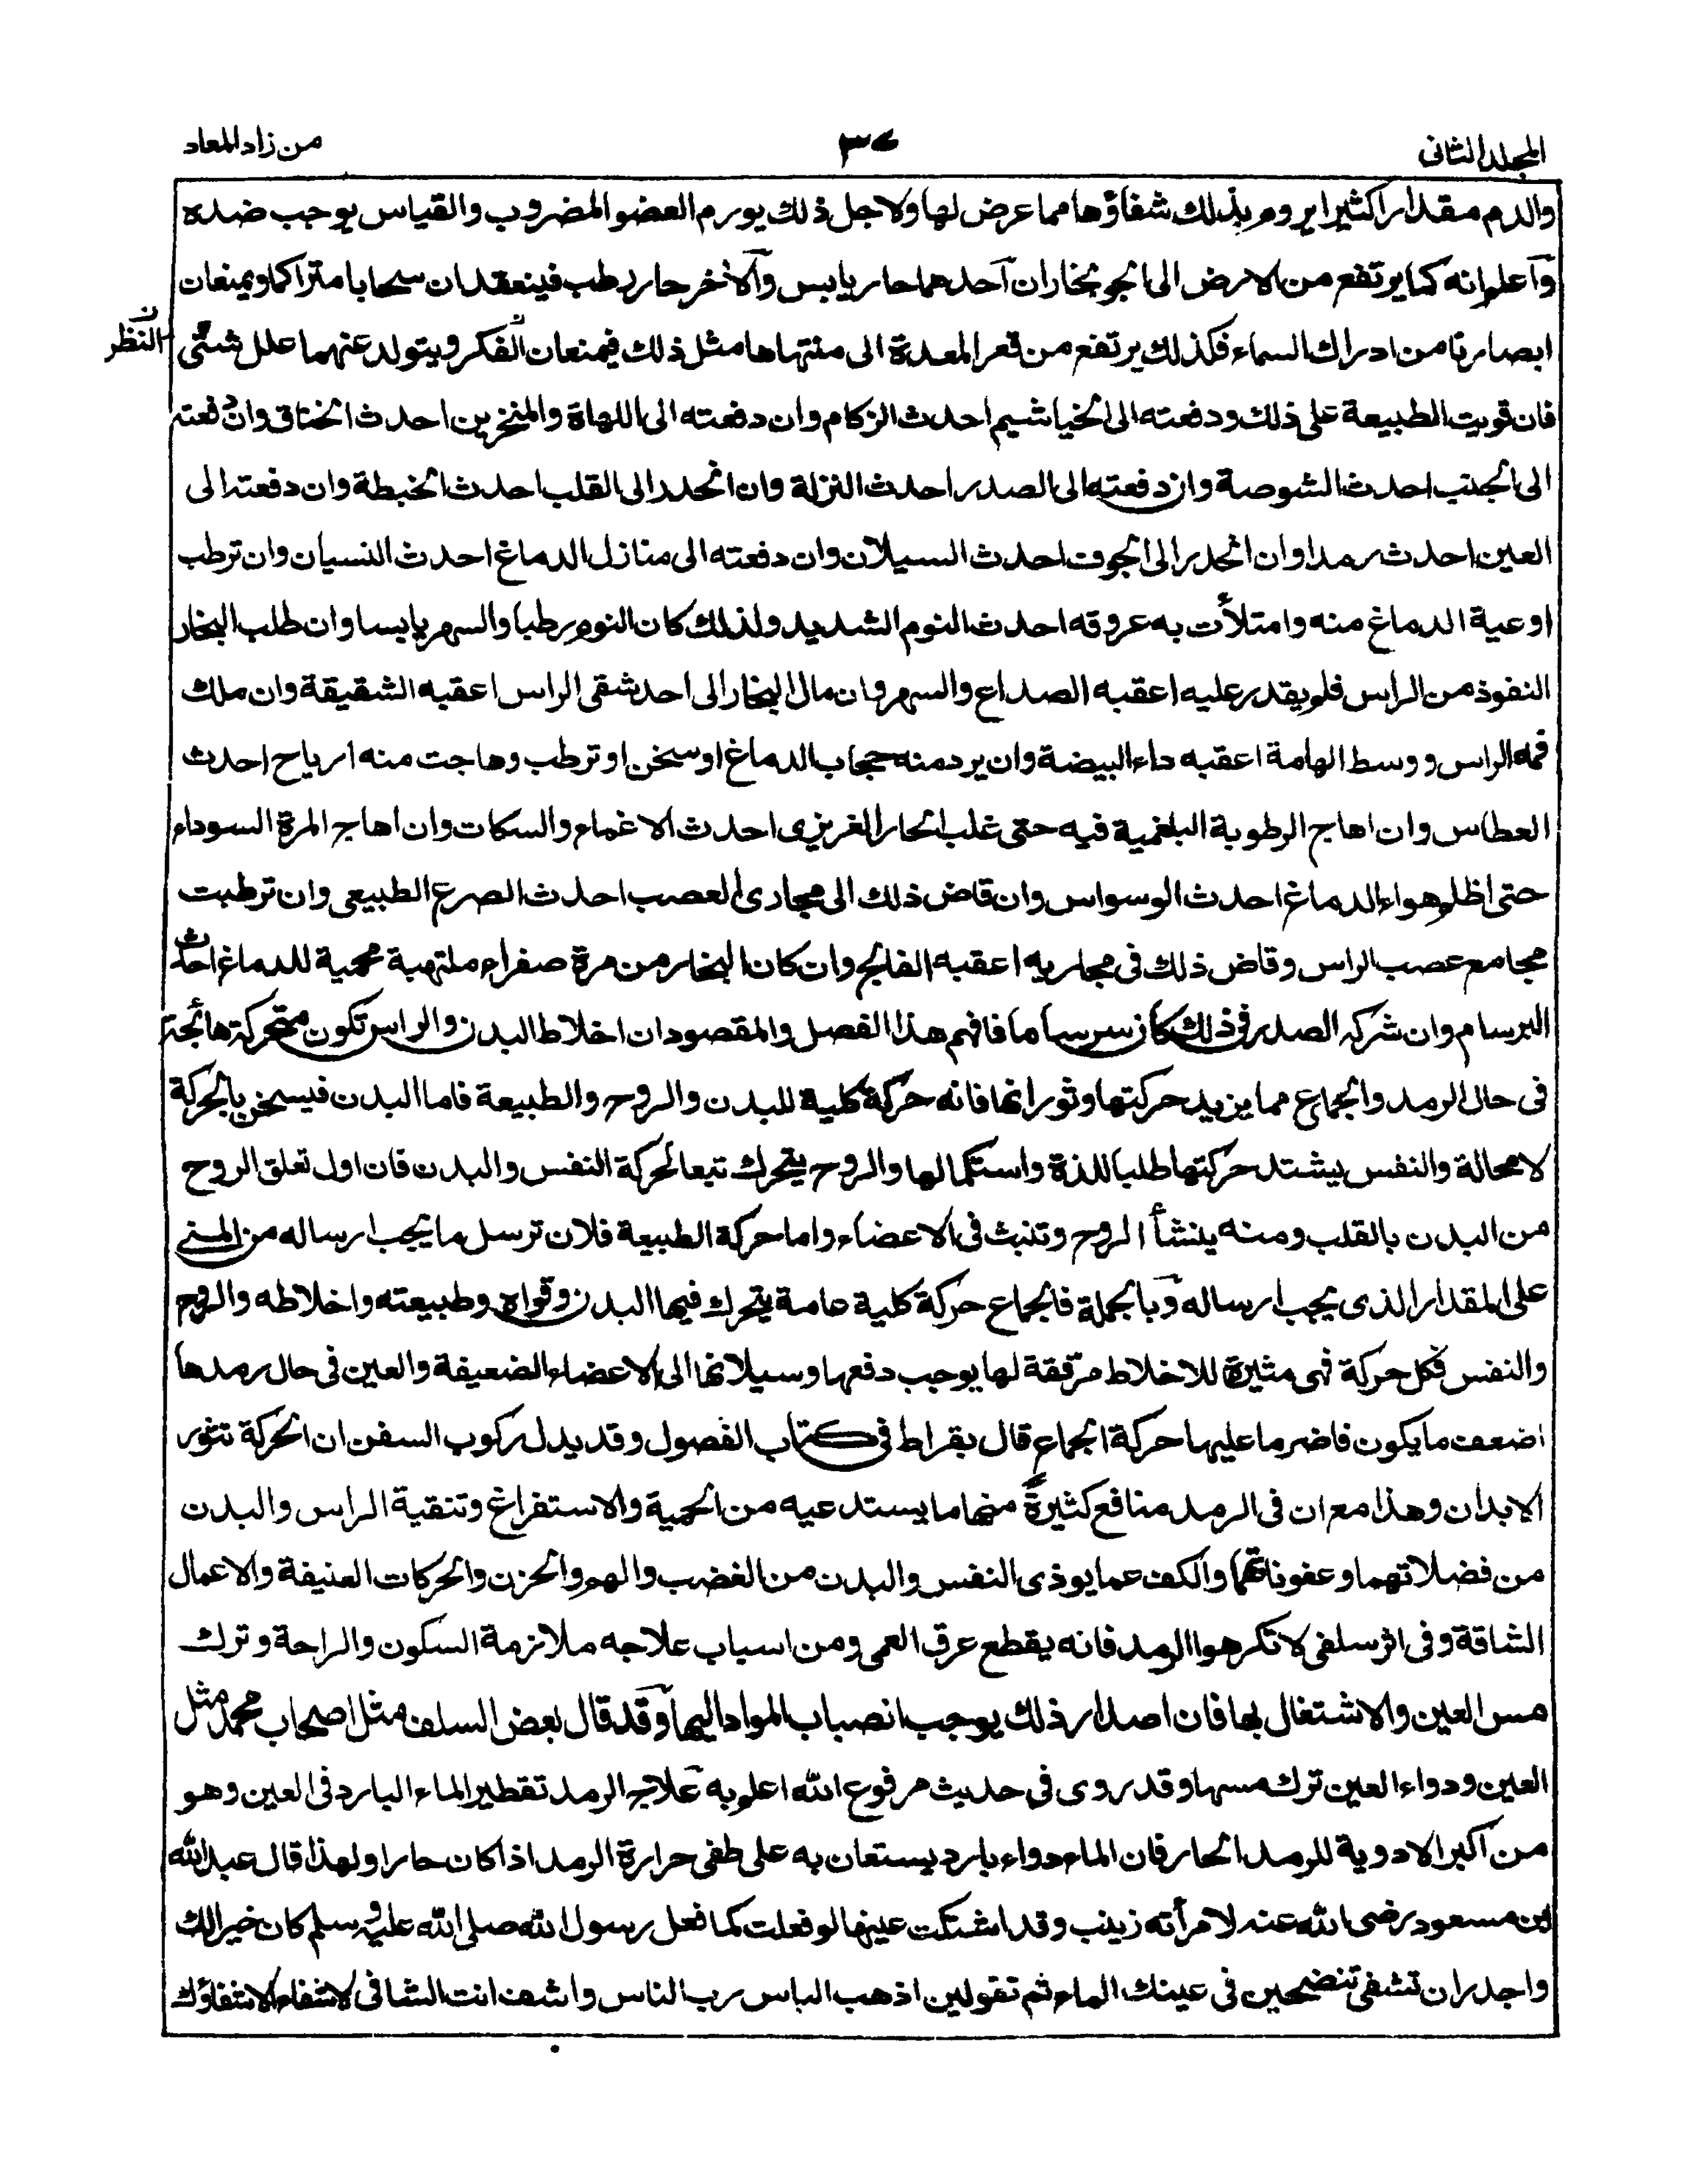 المجلد الثانى
٣٤
من زاد المعاد
والدم مقدارا كثيرا يروم بذلك شفاؤها مما عرض لها ولاجل ذلك يورم العضو المضروب والقياس يوجب ضده
وآعلم انه كما يرتفع من الارض الى الجو بخاران آحدهما حار يابس وآلاخر حار رطب فينعقدان سحابا متراكما ويمنعان
ابصارنا من ادراك السماء فكذلك يرتفع من قعر المعدة الى منتهاها مثل ذلك فيمنعان الفكر ويتولد عنهما علل شتى
النظر
فان قويت الطبيعة على ذلك ودفعته الى الخياشيم احدث الزكام وان دفعته الى اللهاة والمنخرين احدث الخناق وان دفعته
الى الجنب احدث الشوصة وان دفعته الى الصدر احدث النزلة وان انحدر الى القلب احدث الخبطة وان دفعته الى
العين احدث رمدا وان انحدر الى الجوف احدث السيلان وان دفعته الى منازل الدماغ احدث النسيان وان ترطب
اوعية الدماغ منه وامتلأت به عروقه احدث النوم الشديد ولذلك كان النوم رطبا والسهر يابسا وان طلب البخار
النفوذ من الراس فلم يقدر عليه اعقبه الصداع والسهر وان مال البخار الى احد شقى الراس اعقبه الشقيقة وان ملك
قمه الراس ووسط الهامة اعقبه داء البيضة وان يرد منه حجاب الدماغ او سخن او ترطب وهاجت منه ارياح احدث
العطاس وان اهاج الرطوبة البلغمية فيه حتى غلب الحار الغريزى احدث الاغماء والسكات وان اهاج المرة السوداء
حتى اظلم هواء الدماغ احدث الوسواس وان فاض ذلك الى مجارى العصب احدث الصرع الطبيعى وان ترطبت
مجامع عصب الراس وفاض ذلك فى مجاريه اعقبه الفالج وان كان البخار من مرة صفراء ملتهبة محمية للدماغ احدث
البرسام وان شركه الصدر فى ذلك كان سرساما فافهم هذا الفصل والمقصود ان اخلاط البدن والراس تكون متحركة هائجة
فى حال الرمد والجماع مما يزيد حركتها وثورانها فانه حركة كلية للبدن والروح والطبيعة فاما البدن فيسخن بالحركة
لا محالة والنفس يشتد حركتها طلبا للذة واستكمالها والروح يتحرك تبعا لحركة النفس والبدن فان اول تعلق الروح
من البدن بالقلب ومنه ينشأ الروح وتنبث فى الاعضاء واما حركة الطبيعة فلان ترسل ما يجب ارساله من المنى
على المقدار الذى يجب ارساله وبآلجملة فالجماع حركة كلية عامة يتحرك فيها البدن وقواه وطبيعته واخلاطه والروح
والنفس فكل حركة فهى مثيرة للاخلاط مرققة لها يوجب دفعها وسيلانها الى الاعضاء الضعيفة والعين فى حال رمدها
اضعف ما يكون فاضر ما عليها حركة الجماع قال بقراط فى كتاب الفصول وقد يدل ركوب السفن ان الحركة تثور
الابدان وهذا مع ان فى الرمد منافع كثيرةً منها ما يستدعيه من الحمية والاستفراغ وتنقية الراس والبدن
من فضلاتهما وعفوناتهما والكف عما يوذى النفس والبدن من الغضب والهم والحزن والحركات العنيفة والاعمال
الشاقة وفى اثر سلفى لا تكرهوا الرمد فانه يقطع عرق العمى ومن اسباب علاجه ملازمة السكون والراحة وترك
مس العين والاشتغال بها فان اصدار ذلك يوجب انصباب المواد اليها وقد قال بعض السلف مثل اصحاب محمد مثل
العين ودواء العين ترك مسها وقد روى فى حديث مرفوع الله اعلم به علاج الرمد تقطير الماء البارد فى العين وهو
من اكبر الادوية للرمد الحار فان الماء دواء بارد يستعان به على طفى حرارة الرمد اذا كان حارا ولهذا قال عبد الله
ابن مسعود رضى الله عنه لامرأته زينب وقد اشتكت عينها لو فعلت كما فعل رسول الله صلى الله عليه وسلم كان خيرا لك
واجدر ان تشفى تنضحين فى عينك الماء ثم تقولين اذهب الباس رب الناس واشف انت الشافى لا شفاء الا شفاؤك